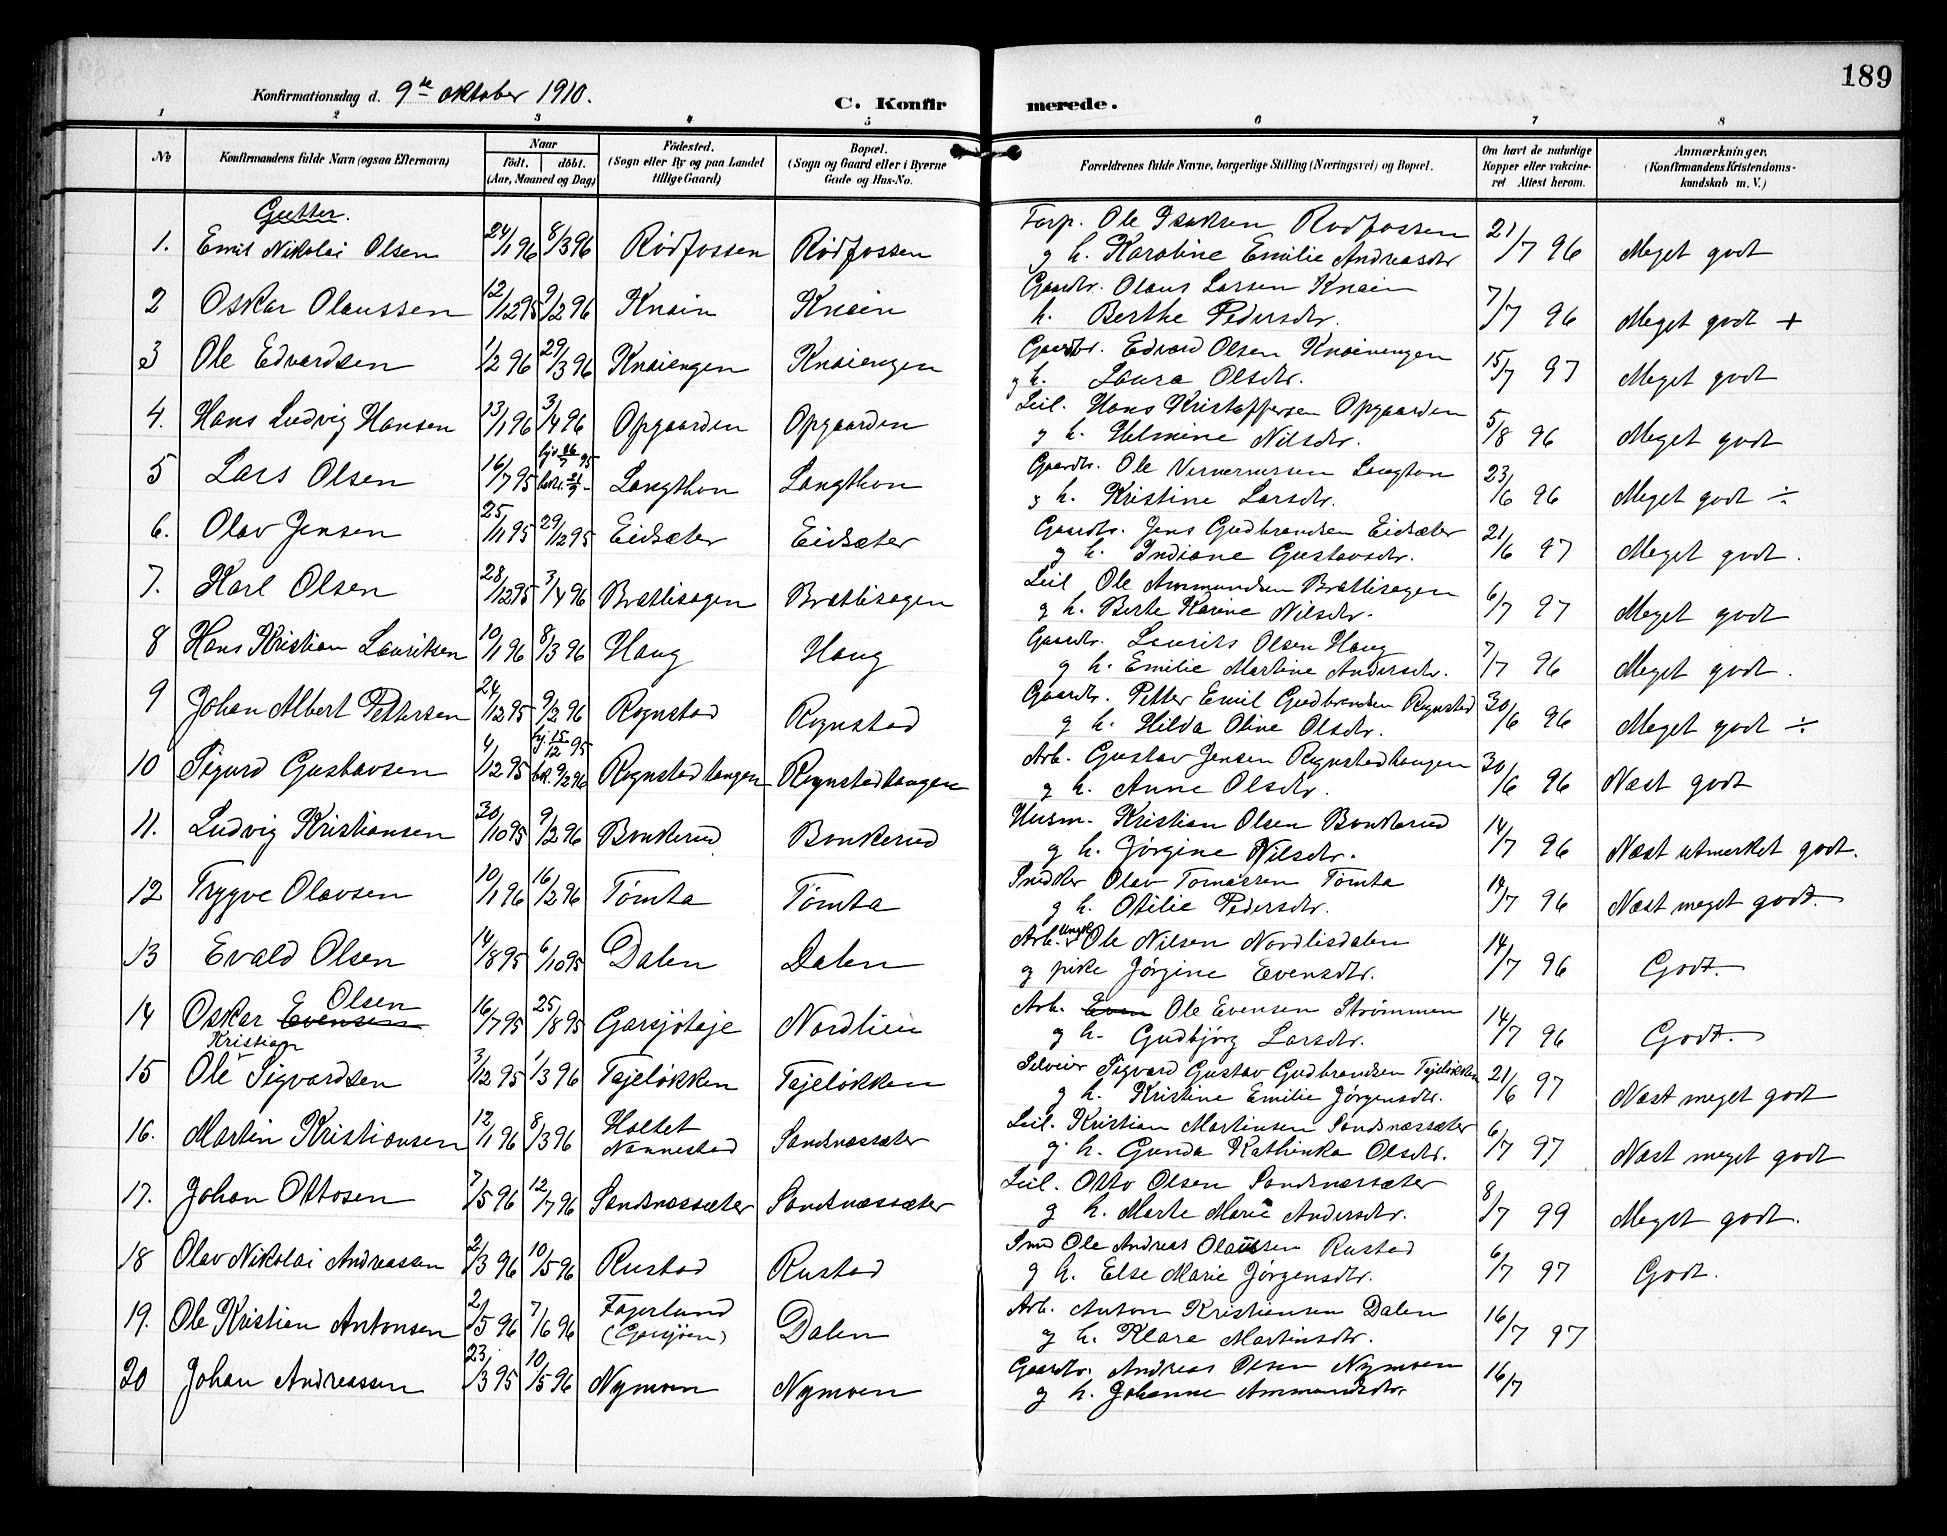 189
Konfirmationsdag d. 9de oktober 1910.
C. Konfirmerede.
1 2 3 4 5 6 7 8
No Konfirmandens fulde Navn (ogsaa Efternavn) Naar födt. döbt. (Aar, Maaned og Dag) Födested. (Sogn eller By og paa Landet tillige Gaard) Bopæl. (Sogn og Gaard eller i Byerne Gade og Hus-No. Forældrenes fulde Navne, borgerlige Stilling (Næringsvei) og Bopæl. Om havt de naturlige Kopper eller vakcineret Attest herom. Anmærkninger. (Konfirmandens Kristendomskundskab m. V.)
Gutter.
1. Emil Nikolai Olsen 24/1 96 8/3 96 Rödfossen Rödfossen Forp. Ole Isaksen Rödfossen
g h. Karoline Emilie Andreasdtr 21/7 96 Meget godt
2 Oskar Olaussen 12/12 95 9/2 96 Knain Knain Gaardbr. Olaus Larsen Knain
h. Berthe Pedersdtr. 7/7 96 Meget godt +
3 Ole Edvardsen 1/2 96 29/3 96 Knaiengen Knaiengen Gaardbr. Edvard Olsen Knaiengen
g h. Laura Olsdtr. 15/7 97 Meget godt
4. Hans Ludvig Hansen 13/1 96 3/4 96 Opgaarden Opgaarden Leil. Hans Kristoffersen Opgaarden
g h. Helmine Nilsdtr. 5/8 96 Meget godt
5 Lars Olsen 16/7 95 Langthon Langthon Gaardbr. Ole Langton
g h. Kristine Larsdtr. 23/6 96 Meget godt ÷
6. Olav Jensen 25/11 95 29/12 95 Eidsæter Eidsæter Gaardbr. Jens Gudbrandsen Eidsæter
g h. Indiane Gustavsdtr. 21/6 97 Meget godt.
7. Karl Olsen 28/12 95 3/4 96 Brætlisagen Brætlisagen Leil Ole Ammundsen Brætlisagen
g h. Berte Karine Nilsdtr. 6/7 97 Meget godt
8 Hans Kristian Lauritsen 10/1 96 8/3 96 Haug Haug Gaardbr. Laurits Olsen Haug
g h. Emilie Martine Andersdtr. 7/7 96 Meget godt.
9 Johan Albert Pettersen 24/12 95 9/2 96 Rognstad Rognstad Gaardbr. Petter Emil Gudbrandsen Rognstad
g h. Hilda Oline Olsdtr. 30/6 96 Meget godt ÷
10 Sigurd Gustavsen 4/12 95 hj 15/12 95 bk. 9/2 96 Rognstadtangen Rognstadtangen Arb. Gustav Jensen Rognstadtangen
g h. Anne Olsdtr. 30/6 96 Næst godt
11. Ludvig Kristiansen 30/10 95 9/2 96 Bonkerud Bonkerud Husm. Kristian Olsen Bonkerud
g h. Jörgine Nilsdtr. 14/7 96 Næst utmerket godt.
12 Trygve Olavsen 10/1 96 16/2 96 Tömta Tömta Snedker Olav Tomassen Tömta
g h. Otilie Pedersdtr. 14/7 96 Næst meget godt.
13 Evald Olsen 14/8 95 6/10 95 Dalen Dalen Arb. Ungk. Ole Nilsen Nordlisdalen
g pike Jörgine Evensdtr. 14/7 96 Godt.
14 Oskar Evensen Olsen 16/7 95 25/8 95 Garsjötaje Nordlien Arb. Even Ole Evensen Strömmen
g h. Gudbjörg Larsdtr. 14/7 96 Godt.
15 Ole Kristian Sigvardsen 3/12 95 1/3 96 Tajelökken Tajelökken Selveier Sigvard Gustav Gudbrandsen Tajelökken
g h. Kristine Emilie Jörgensdtr. 21/6 97 Næst meget godt
16. Martin Kristiansen 12/1 96 8/3 96 Holtet Nannestad Sandnæssæter Leil. Kristian Martinsen Sandnæssæter
g h. Gunda Kathinka Olsdtr. 6/7 97 Næst meget godt
17. Johan Ottosen 7/5 96 12/7 96 Sandnæssæter Sandnæssæter Leil. Otto Olsen Sandnæssæter
g h. Marte Marie Andersdtr. 8/7 99 Meget godt.
18 Olav Nikolai Andreassen 2/3 96 10/5 96 Rustad Rustad Smed Ole Andreas Olaussen Rustad
g h. Else Marie Jörgensdtr. 6/7 97 Godt.
19. Ole Kristian Antonsen 2/5 96 7/6 96 Fagerlund (Garsjöen) Dalen Arb. Anton Kristiansen Dalen
g h. Klara Martinsdtr. 16/7 97
20 Johan Andreassen 23/3 95 10/5 96 Nymoen Nymoen Gaardbr. Andreas Olsen Nymoen
g h. Johanne Ammundsdtr 16/7